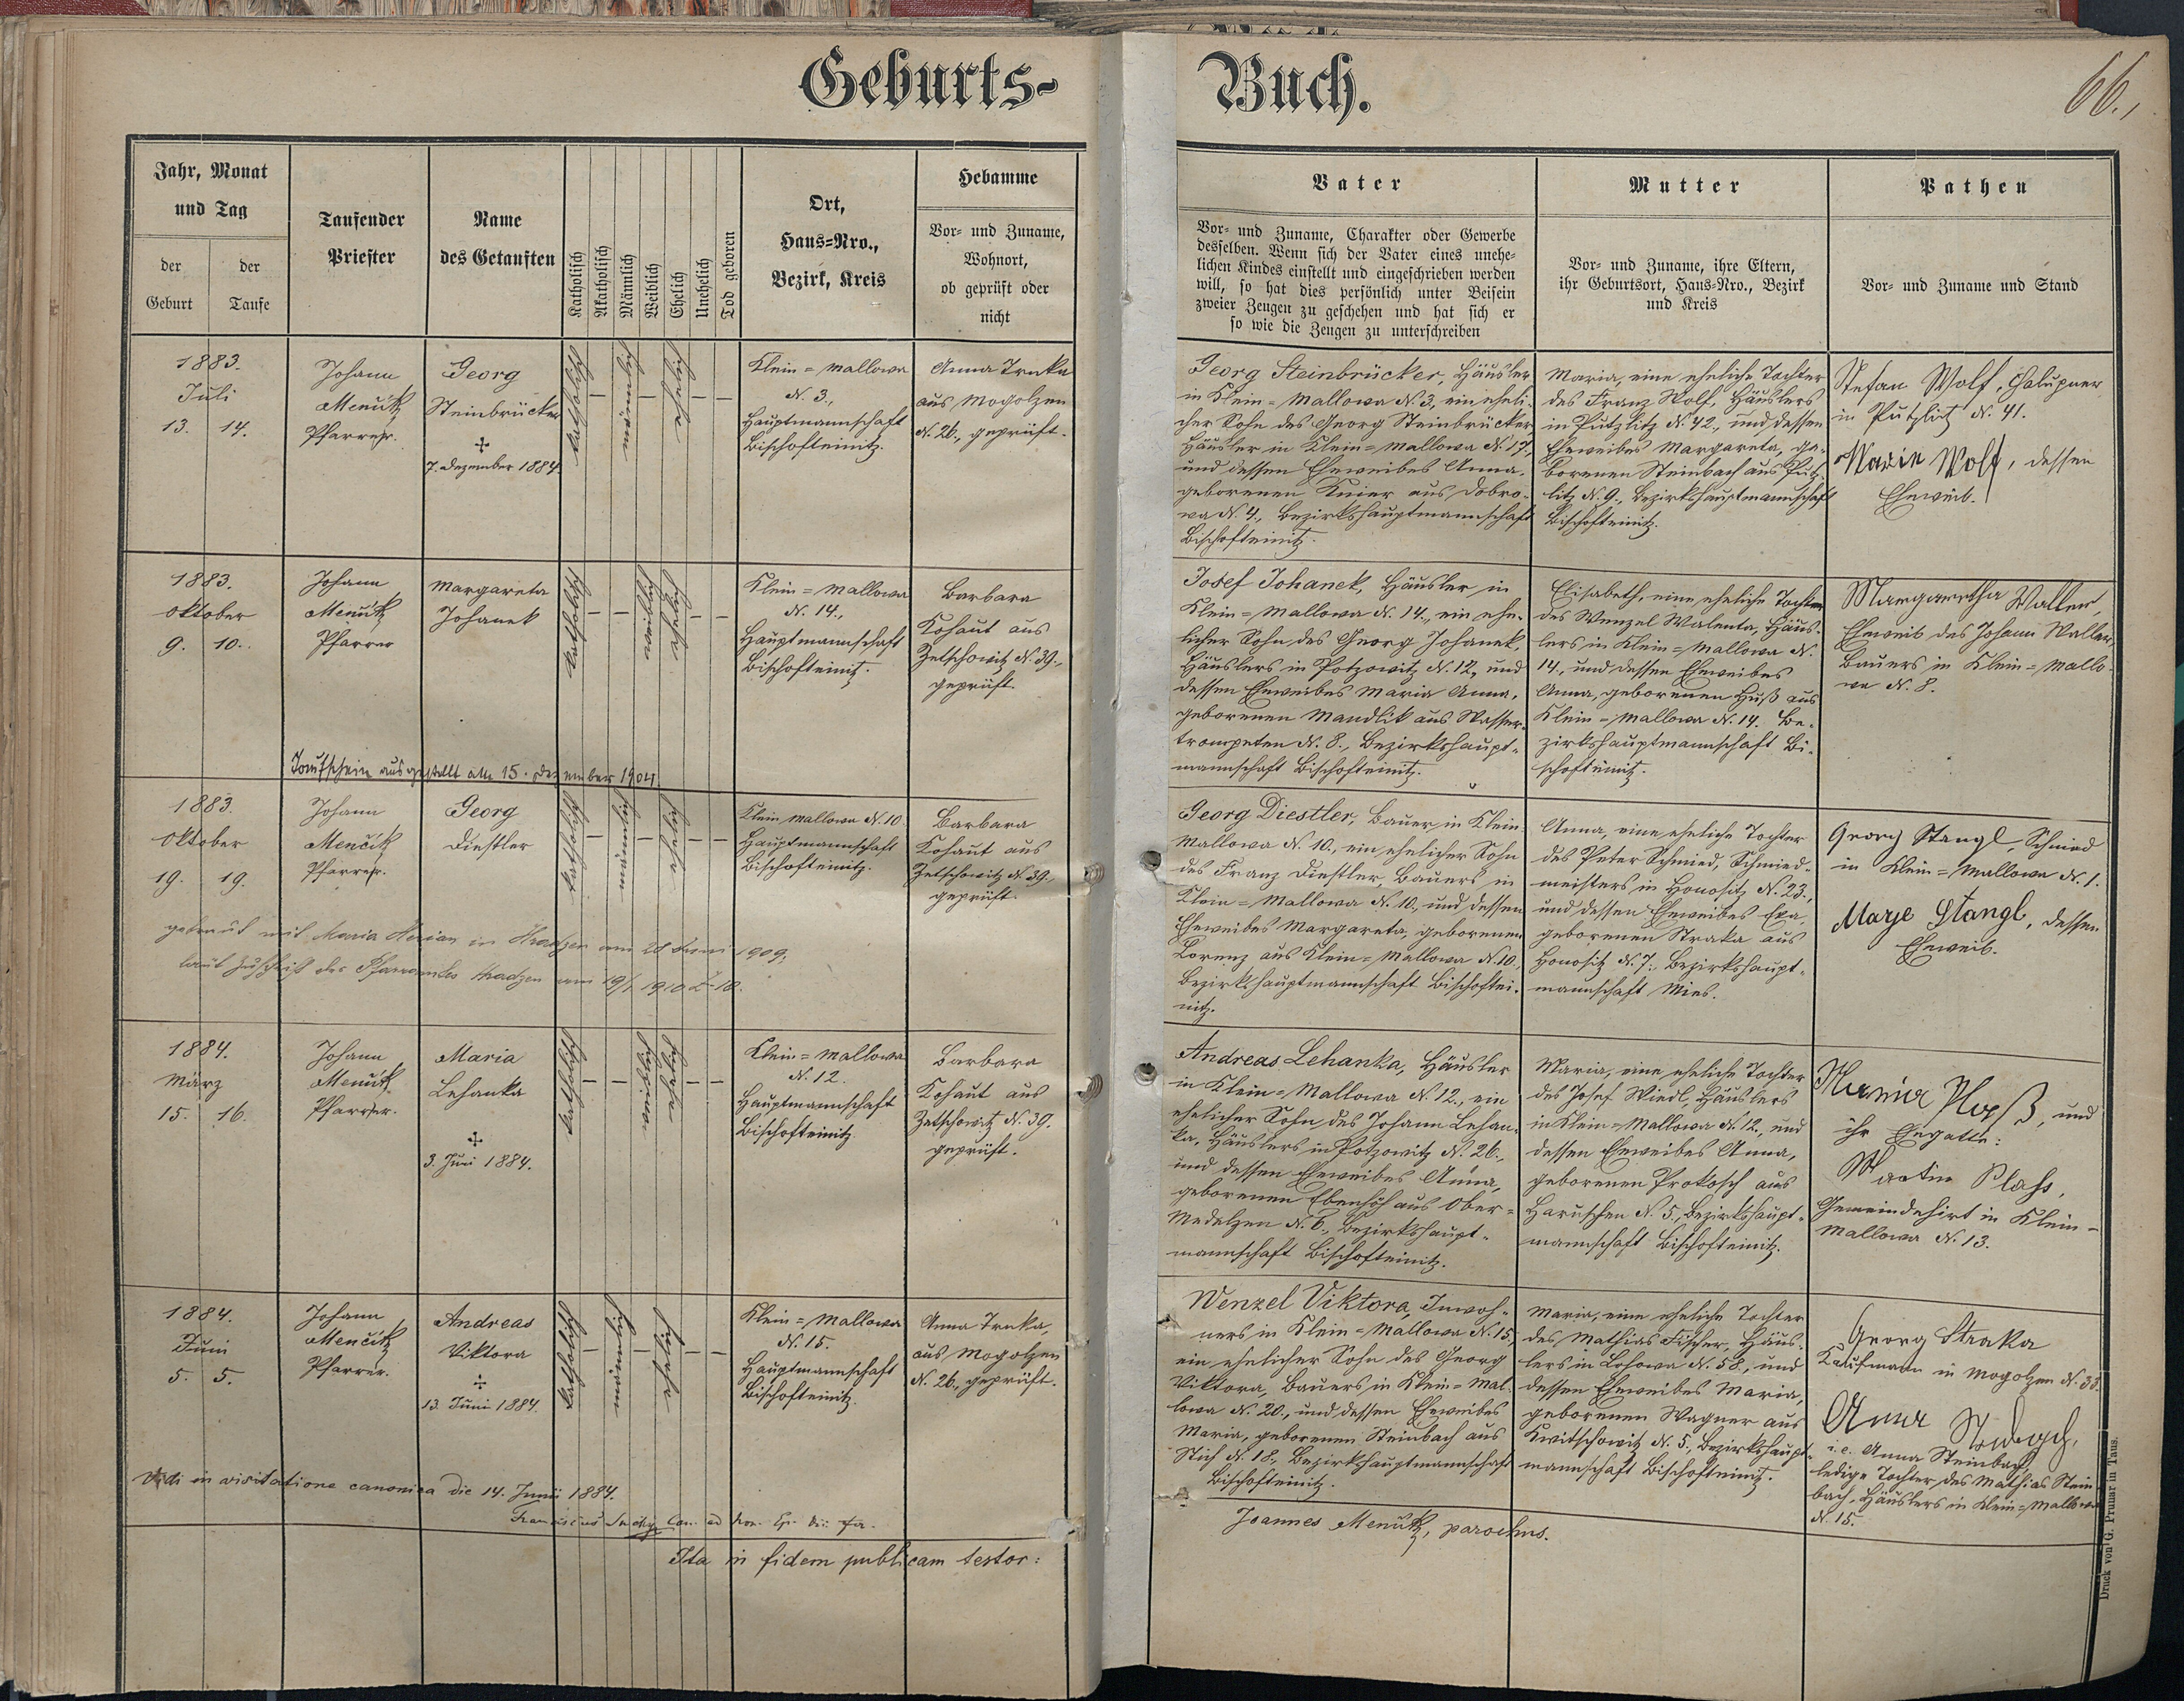 Geburts-
Buch.
66.
Jahr, Monat
und Tag
der
Geburt
der
Taufe
Taufender
Priester
Name
des Getauften
Katholisch
Akatholisch
Männlich
Weiblich
Ehelich
Unehelich
Tod geboren
Ort,
Haus=Nro.,
Bezirk, Kreis
Hebamme
Vor- und Zuname,
Wohnort,
ob geprüft oder
nicht
Vater
Vor- und Zuname, Charakter oder Gewerbe
desselben. Wenn sich der Vater eines unehe-
lichen Kindes einstellt und eingeschrieben werden
will, so hat dies persönlich unter Beisein
zweier Zeugen zu geschehen und hat sich er
so wie die Zeugen zu unterschreiben
Mutter
Vor- und Zuname, ihre Eltern,
ihr Geburtsort, Haus-Nro., Bezirk
und Kreis
Pathen
Vor- und Zuname und Stand
1883.
Juli
13. 14.
Johann
Menčik
Pfarrer.
Georg
Steinbrücker
7. Dezember 1884
katholisch
–
männlich
–
ehelich
– –
Klein=Mallowa
N. 3.,
Hauptmannschaft
Bischofteinitz.
Anna Trnka
aus Mogolzen
N. 26., geprüft.
Georg Steinbrücker, Häusler
in Klein=Mallowa N. 3, ein eheli-
cher Sohn des Georg Steinbrücker
Häusler in Klein=Mallowa N. 17,
und dessen Eheweibes Anna,
geborenen Knier aus Dobro-
wa N. 4., Bezirkshauptmannschaft
Bischofteinitz.
Maria, eine eheliche Tochter
des Franz Wolf, Häuslers
in Putzlitz N. 42., und dessen
Eheweibes Margareta, ge-
borenen Steinbach aus Putz-
litz N. 9., Bezirkshauptmannschaft
Bischofteinitz.
Stefan Wolf, Chalupner
in Putzlitz N. 41.
Maria Wolf, dessen
Eheweib.
1883.
Oktober
9. 10.
Johann
Menčik
Pfarrer
Margareta
Johanek
katholisch
– –
weiblich
ehelich
– –
Klein=Mallowa
N. 14.,
Hauptmannschaft
Bischofteinitz.
Barbara
Kohaut aus
Zetschowitz N. 39.,
geprüft.
Josef Johanek, Häusler in
Klein=Mallowa N. 14., ein ehe-
licher Sohn des Georg Johanek,
Häuslers in Potzowitz N. 12., und
dessen Eheweibes Maria Anna,
geborenen Mandlik aus Wasser-
trompeten N. 8., Bezirkshaupt-
mannschaft Bischofteinitz.
Elisabeth, eine eheliche Tochter
des Wenzel Walenta, Häus-
lers in Klein=Mallowa N.
14., und dessen Eheweibes
Anna, geborenen Huß aus
Klein=Mallowa N. 14. Be-
zirkshauptmannschaft Bi-
schofteinitz.
Margaretha Waller,
Eheweib des Johann Waller,
Bauers in Klein=Mallo-
wa N. 8.
Taufschein ausgestellt am 15. Dezember 1904
1883.
Oktober
19. 19.
Johann
Menčik
Pfarrer.
Georg
Diestler
katholisch
–
männlich
–
ehelich
– –
Klein Mallowa N. 10
Hauptmannschaft
Bischofteinitz.
Barbara
Kohaut aus
Zetschowitz N. 39.,
geprüft.
Georg Diestler, Bauer in Klein
Mallowa N. 10., ein ehelicher Sohn
des Franz Diestler, Bauers in
Klein=Mallowa N. 10., und dessen
Eheweibes Margareta, geborenen
Lorenz aus Klein=Mallowa N. 10.,
Bezirkshauptmannschaft Bischoftei-
nitz.
Anna, eine eheliche Tochter
des Peter Schmied, Schmied-
meisters in Honositz N. 23.,
und dessen Eheweibes Eva,
geborenen Straka aus
Honositz N. 7., Bezirkshaupt-
mannschaft Mies.
Georg Stangl, Schmied
in Klein=Mallowa N. 1.
Marje Stangl, dessen
Eheweib.
getraut mit Maria in Hradzen am 28 Juni 1909,
laut Zuschrift des Pfarramtes Hradzen vom 19/1 1910 Z 18.
1884.
März
15. 16.
Johann
Menčik
Pfarrer.
Maria
Lehanka
3. Juni 1884.
katholisch
– –
weiblich
ehelich
– –
Klein=Mallowa
N. 12.
Hauptmannschaft
Bischofteinitz
Barbara
Kohaut aus
Zetschowitz N. 39.
geprüft.
Andreas Lehanka, Häusler
in Klein=Mallowa N. 12., ein
ehelicher Sohn des Johann Lehan-
ka, Häuslers in Potzowitz N. 26.,
und dessen Eheweibes Anna,
geborenen Ebenhöh aus Ober=
Medelzen N. 6., Bezirkshaupt-
mannschaft Bischofteinitz.
Maria, eine eheliche Tochter
des Josef Wiedl, Häuslers
in Klein=Mallowa N. 12., und
dessen Eheweibes Anna,
geborenen Prokosch aus
Haruschen N. 5., Bezirkshaupt-
mannschaft Bischofteinitz.
Plaß, und
ihr Ehegatte:
Martin Plass,
Gemeindehirt in Klein-
Mallowa N. 13.
1884.
Juni
5. 5.
Johann
Menčik
Pfarrer.
Andreas
Viktora
13. Juni 1884.
katholisch
–
männlich
–
ehelich
– –
Klein=Mallowa
N. 15.
Hauptmannschaft
Bischofteinitz.
Anna Trnka,
aus Mogolzen
N. 26., geprüft.
Wenzel Viktora, Inwoh-
ners in Klein=Mallowa N. 15,
ein ehelicher Sohn des Georg
Viktora, Bauers in Klein=Mal-
lowa N. 20., und dessen Eheweibes
Maria, geborenen Steinbach aus
Stich N. 18., Bezirkshauptmannschaft
Bischofteinitz.
Maria, eine eheliche Tochter
des Mathias Fischer, Häus-
lers in Lohowa N. 58., und
dessen Eheweibes Maria,
geborenen Wagner aus
Kwitschowitz N. 5., Bezirkshaupt-
mannschaft Bischofteinitz.
Georg Straka
Kaufmann in Mogolzen N. 33.
Anna
i. e. Anna Steinbach,
ledige Tochter des Mathias Stein-
bach, Häuslers in Klein=Mallowa
N. 15.
Vidi in visitatione canonica die 14. Junii 1884.
Franciscus
Ita in fidem publicam testor:
Joannes Menčik, parochus.
Druck von G. Prunar in Taus.